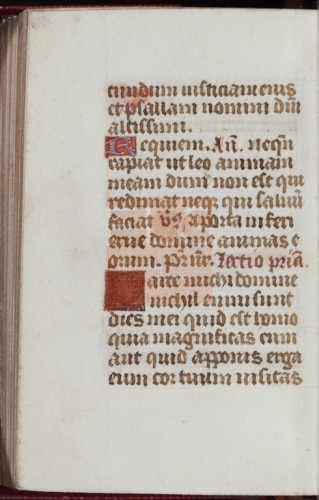 cundum iusticiam eius
et psallam nomini dn̄i
altissimi.
Requiem. Añ. Neqn̄
rapiat ut leo animam
meam dum non est qui
redimat neq; qui saluū
faciat v̄s. A porta inferi
erue domine animas e
orum. Pr̄ nr̄. Lectio pria.
Parce michi domine
nichil enim sunt
dies mei quid est homo
quia magnificas eum
aut quid apponis erga
eum cor tuum uisitas